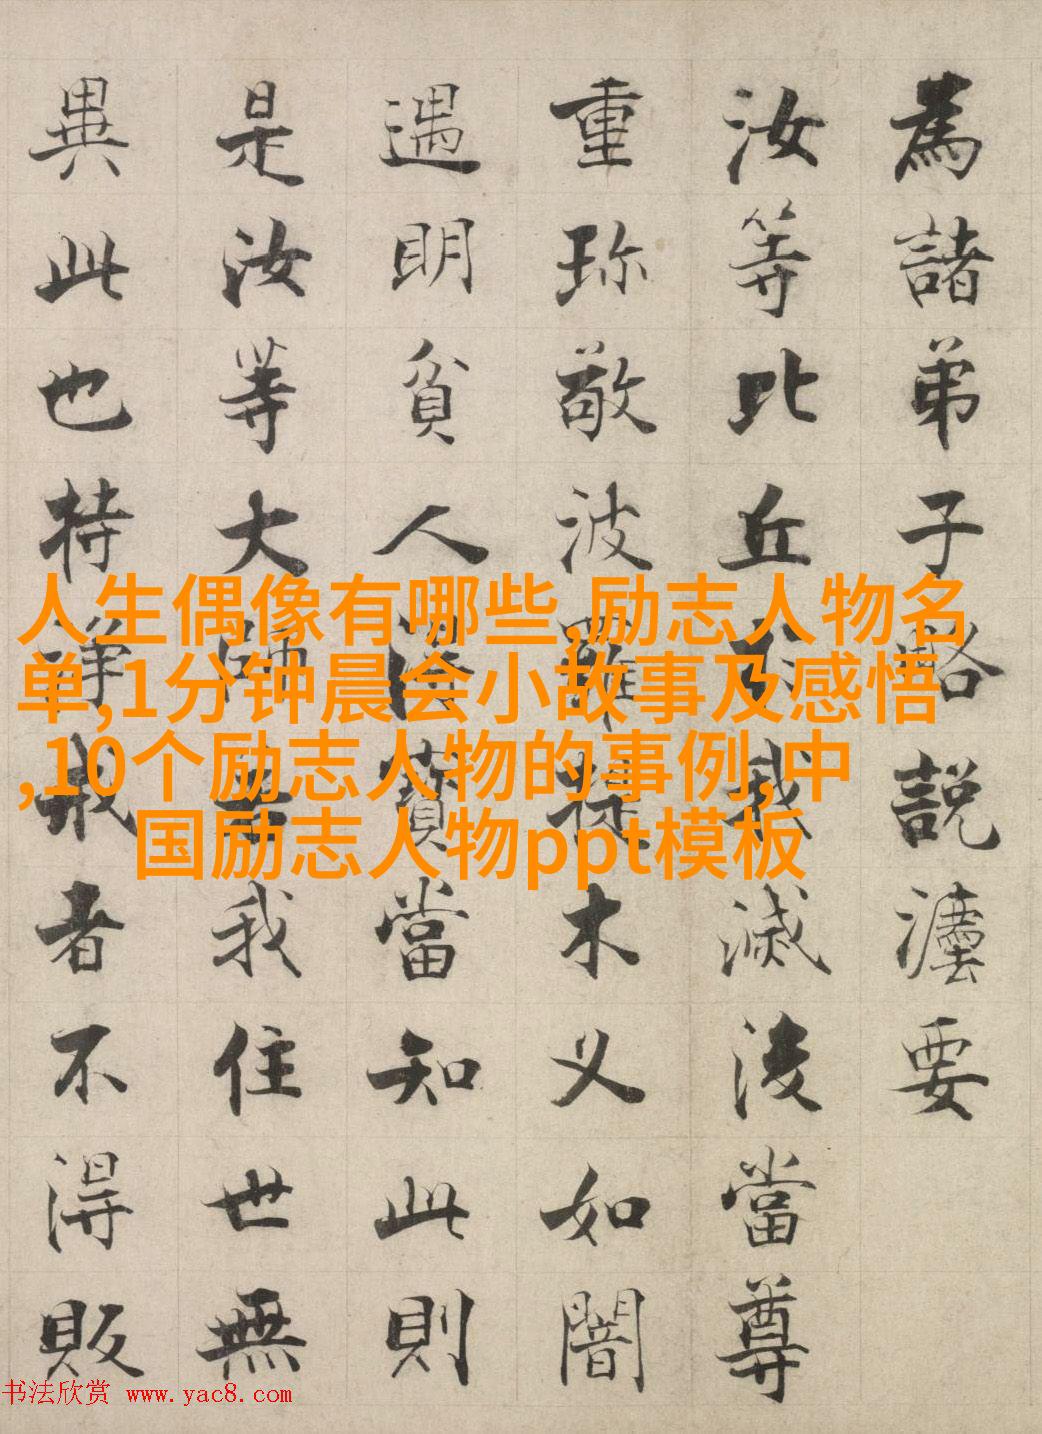 為諸弟子略說法要
汝等比丘於我滅後當尊
重珎敬波羅提木叉如闇
遇明貧人得寶當知此則
是汝等大師若我住世無
異此也持淨戒者不得販
人生偶像有哪些,励志人物名
单,1分钟晨会小故事及感悟
,10个励志人物的事例,中
国励志人物ppt模板
书法欣赏 www.yac8.com